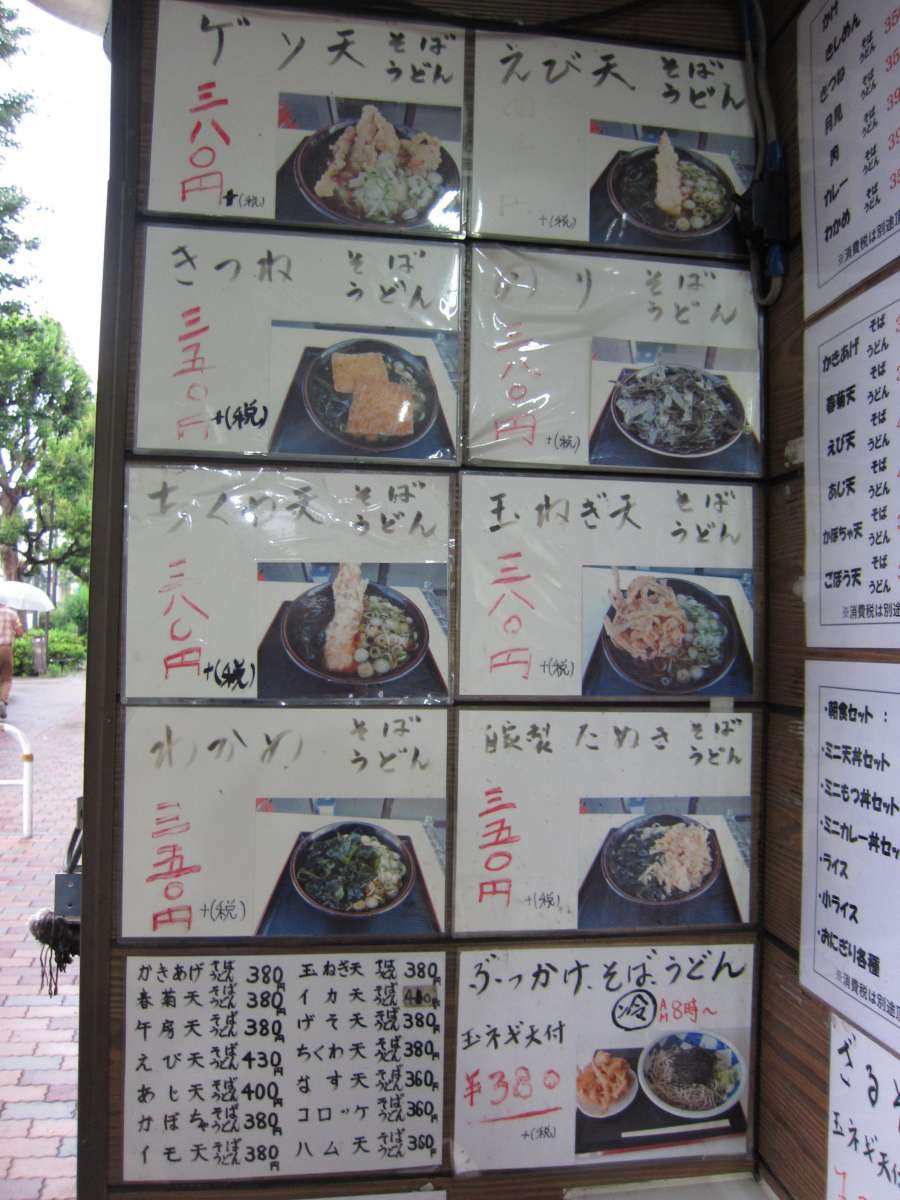 ゲソ天 そば
うどん
三八〇円
+(税)
えび天 そば
うどん
+(税)
きつね そば
うどん
三五〇円
+(税)
のり そば
うどん
三八〇円
+(税)
ちくわ天 そば
うどん
三八〇円
+(税)
玉ねぎ天 そば
うどん
三八〇円
+(税)
わかめ そば
うどん
三五〇円
+(税)
製 たぬき そば
うどん
三五〇円
+(税)
かきあげ そばうどん 380円
春菊天 そばうどん 380円
午房天 そばうどん 380円
えび天 そばうどん 430円
あじ天 そばうどん 400円
かぼちゃ そばうどん 380円
イモ天 そばうどん 380円
玉ねぎ天 そばうどん 380円
イカ天 そばうどん
げそ天 そばうどん 380円
ちくわ天 そばうどん 380円
なす天 そばうどん 360円
コロッケ そばうどん 360円
ハム天 そばうどん 360円
ぶっかけ、そば、うどん
冷 AM8時～
玉ネギ天付
¥380
+(税)
かけ
きしめん そばうどん
きつね そばうどん
月見 そばうどん
肉 そばうどん
カレー そばうどん
わかめ そばうどん
※消費税は別途
かきあげ そばうどん
春菊天 そばうどん
えび天 そばうどん
あじ天 そばうどん
かぼちゃ天 そばうどん
ごぼう天 そばうどん
※消費税は別
・朝食セット：
・ミニ天丼セット
・ミニもつ丼セット
・ミニカレー丼セッ
・ライス
・小ライス
・おにぎり各種
※消費税は別途
ざる
玉ネギ天付